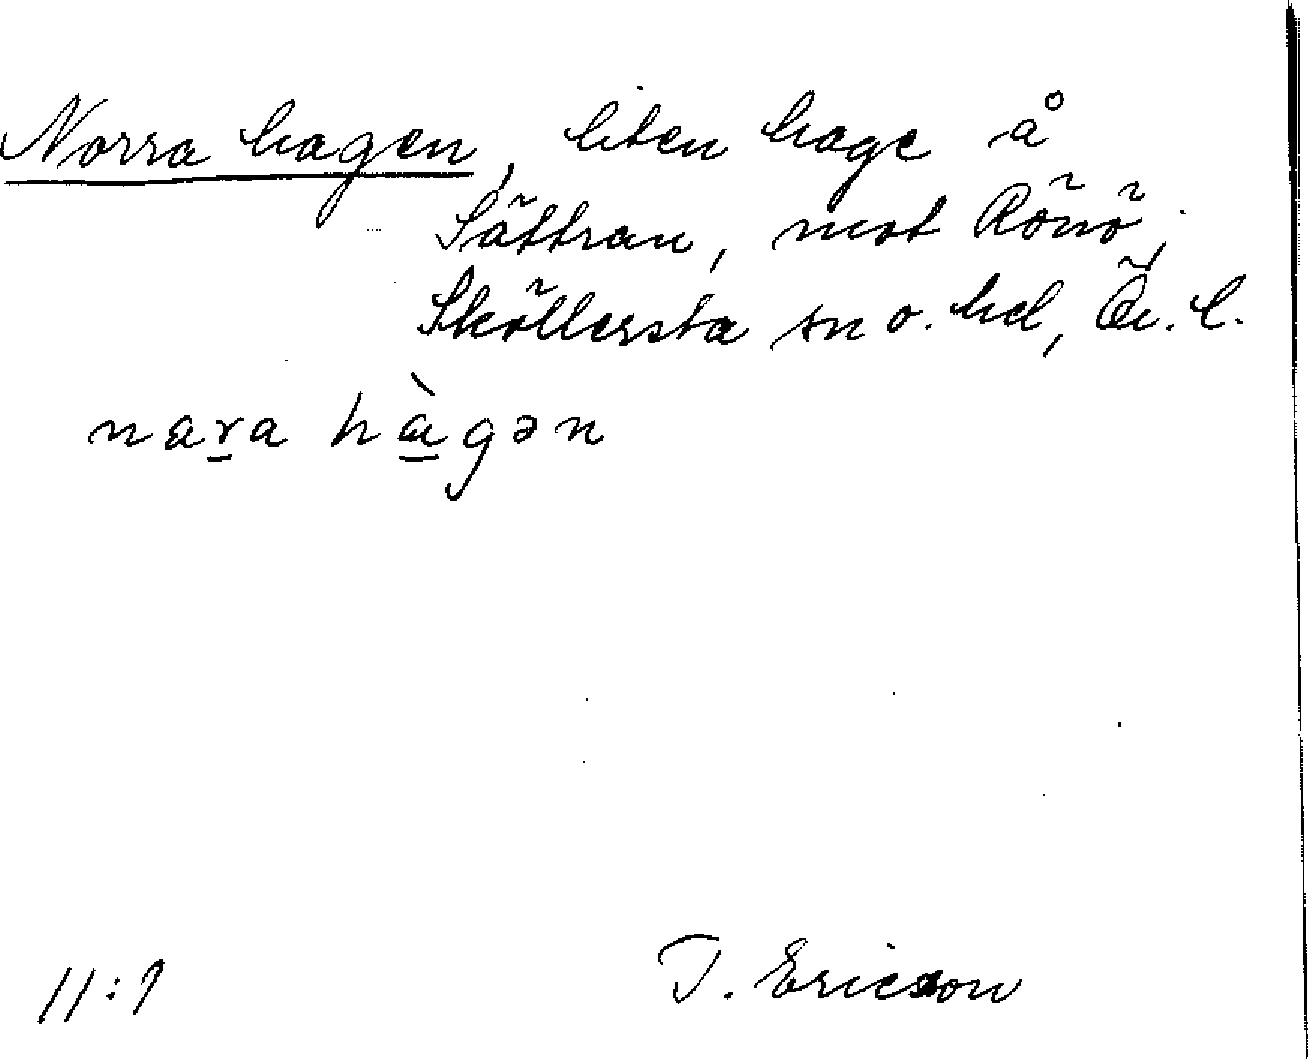 Norra hagen, liten hage å
Sättran, mot Rönö,
Sköllersta sn o. hd, Ör. l.
nara hàgən
11:1 T. Ericson